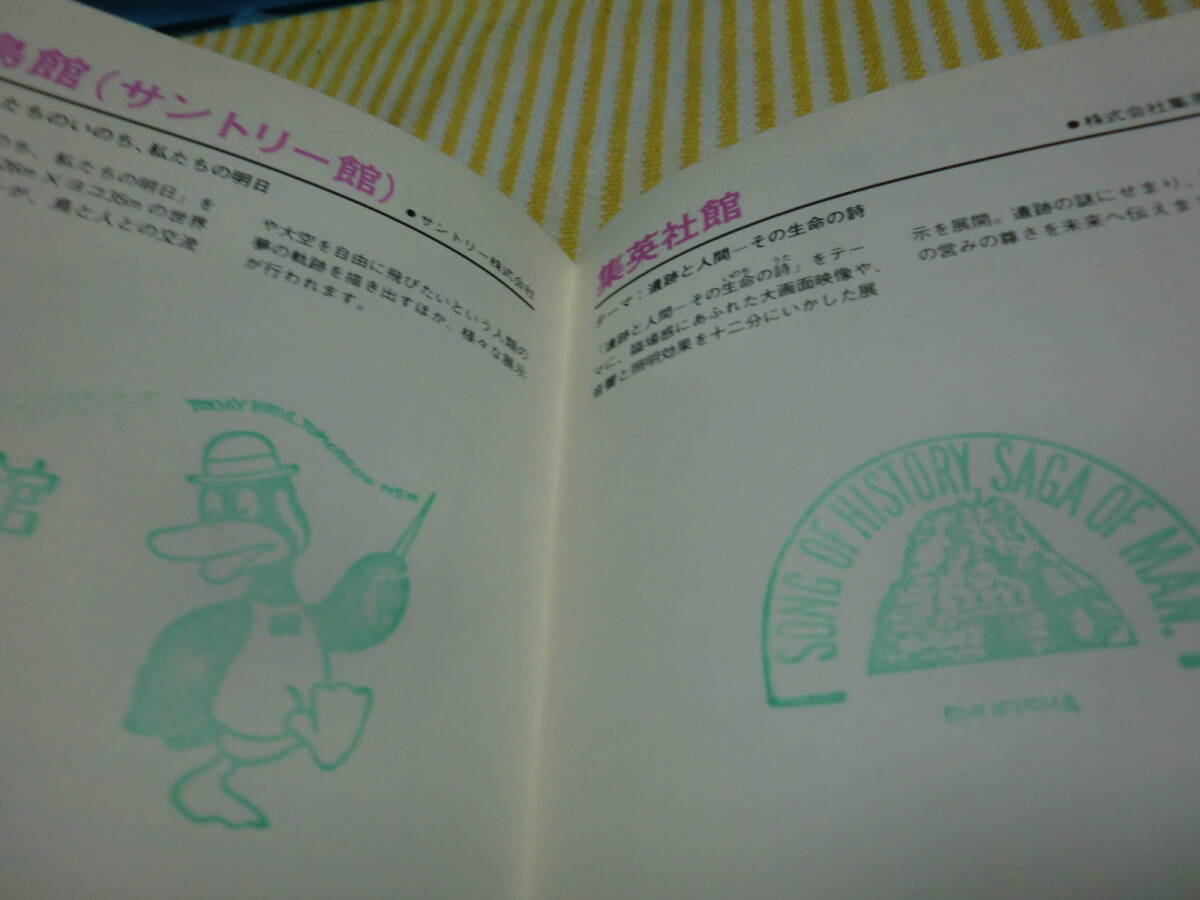 鳥館(サントリー館)
●サントリー株式会社
たちのいのち、私たちの明日
のち、私たちの明日』を
26m×ヨコ35mの世界
が、鳥と人との交流
や大空を自由に飛びたいという人類の
夢の軌跡を描き出すほか、様々な展示
が行われます。
館
TODAY BIRDS, TOMORROW MEN
集英社館
●株式会社集英
テーマ:遺跡と人間―その生命の詩
『遺跡と人間―その生命の詩』をテー
いのち うた
マに、臨場感にあふれた大画面映像や、
音響と照明効果を十二分にいかした展
示を展開。遺跡の謎にせまり、
の営みの尊さを未来へ伝えま
SONG OF HISTORY, SAGA OF MAN.
SHUEISHA